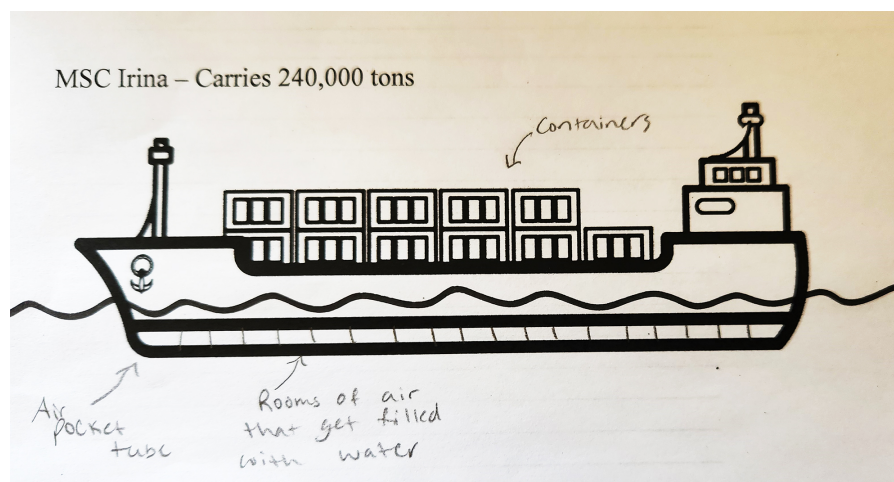 MSC Irina – Carries 240,000 tons
Containers
Air
Pocket
tube
Rooms of air
that get filled
with water